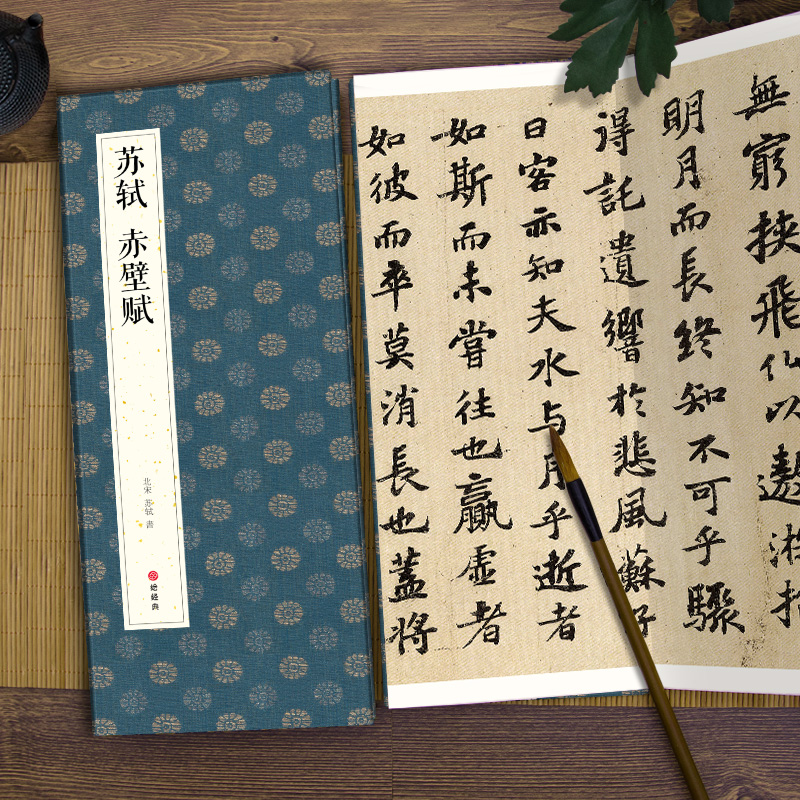 苏轼 赤壁赋
北宋 苏轼 書
無窮挾飛仙以遨遊抱
明月而長終知不可乎驟
得託遺響於悲風蘇子
曰客亦知夫水与月乎逝者
如斯而未嘗往也贏虛者
如彼而卒莫消長也蓋將